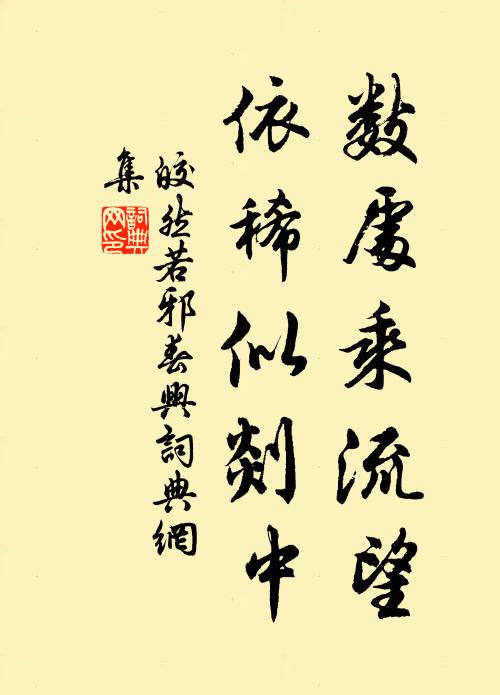 數處乘流望
依稀似剡中
皎然若邪春興詞典網
集
詞典
网印